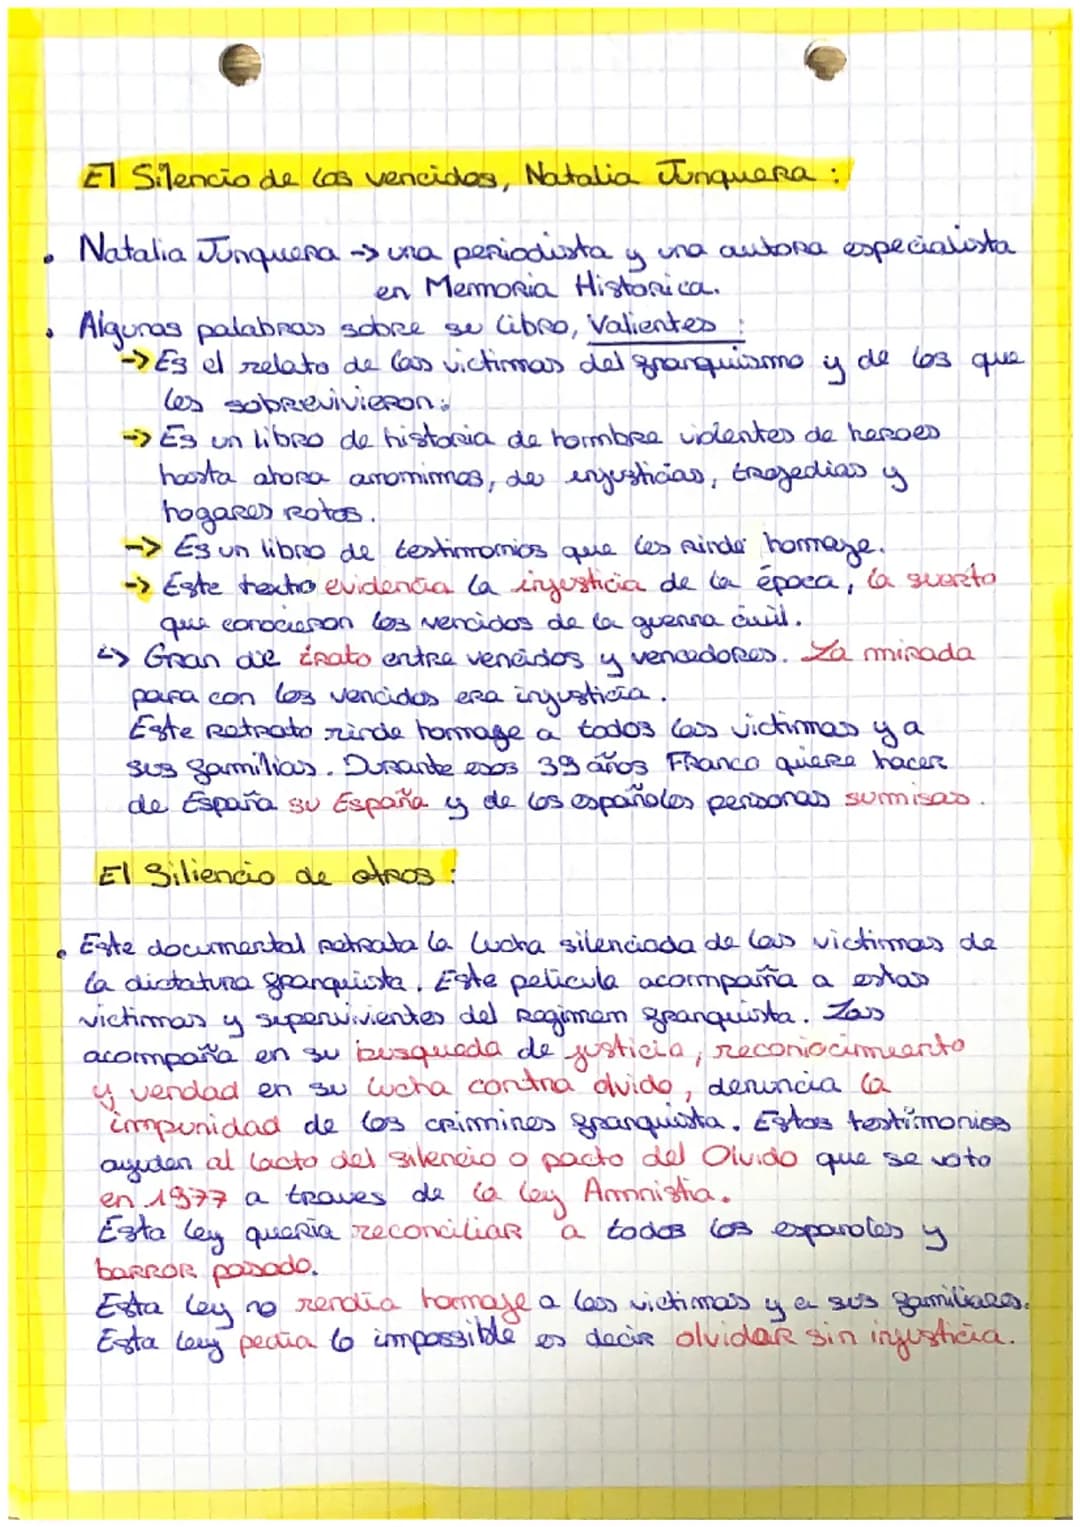 El Silencio de los vencidos, Natalia Junquera :
• Natalia Junquera -> una periodista y una autora especialista
en Memoria Historica.
• Algunas palabras sobre su libro, Valientes :
-> Es el relato de las victimas del franquismo y de los que
les sobrevivieron.
-> Es un libro de historia de hombre violentes de heroes
hasta ahora anonimas, de injusticias, tragedias y
hogares rotos.
-> Es un libro de testimonios que les rinde homage.
-> Este texto evidencia la injusticia de la época, la suerto
que conocieron los vencidos de la guerra civil.
↳ Gran die trato entre vencidos y vencedores. La mirada
para con los vencidos era injusticia.
Este Retrato rinde homage a todos las victimas y a
sus familias. Durante esos 39 años Franco quiere hacer
de España su España y de los españoles personas sumisas.
El Siliencio de otros :
• Este documental retrata la lucha silenciada de las victimas de
la dictatura franquista. Este pelicula acompaña a estas
victimas y supervivientes del Regimem franquista. Las
acompaña en su busqueda de justicia, reconiocimeento
y verdad en su lucha contra olvido, denuncia la
impunidad de los crimines franquista. Estos testimonios
ayuden al lacto del silencio o pacto del Olvido que se voto
en 1977 a traves de la ley Amnistia.
Esta ley queria reconciliar a todos los espanoles y
barror pasado.
Esta ley no rendia homaje a las victimas y a sus familiares.
Esta ley pedia lo impossible es decir olvidar sin injusticia.